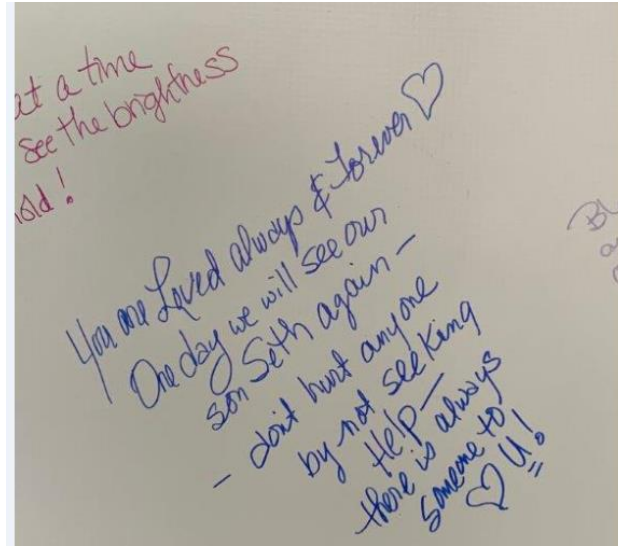 at a time
see the brightness
hold!
You are Loved always & Forever ♡
One day we will see our
son Seth again -
- don't hurt anyone
by not seeking
Help -
there is always
someone to
♡ U!